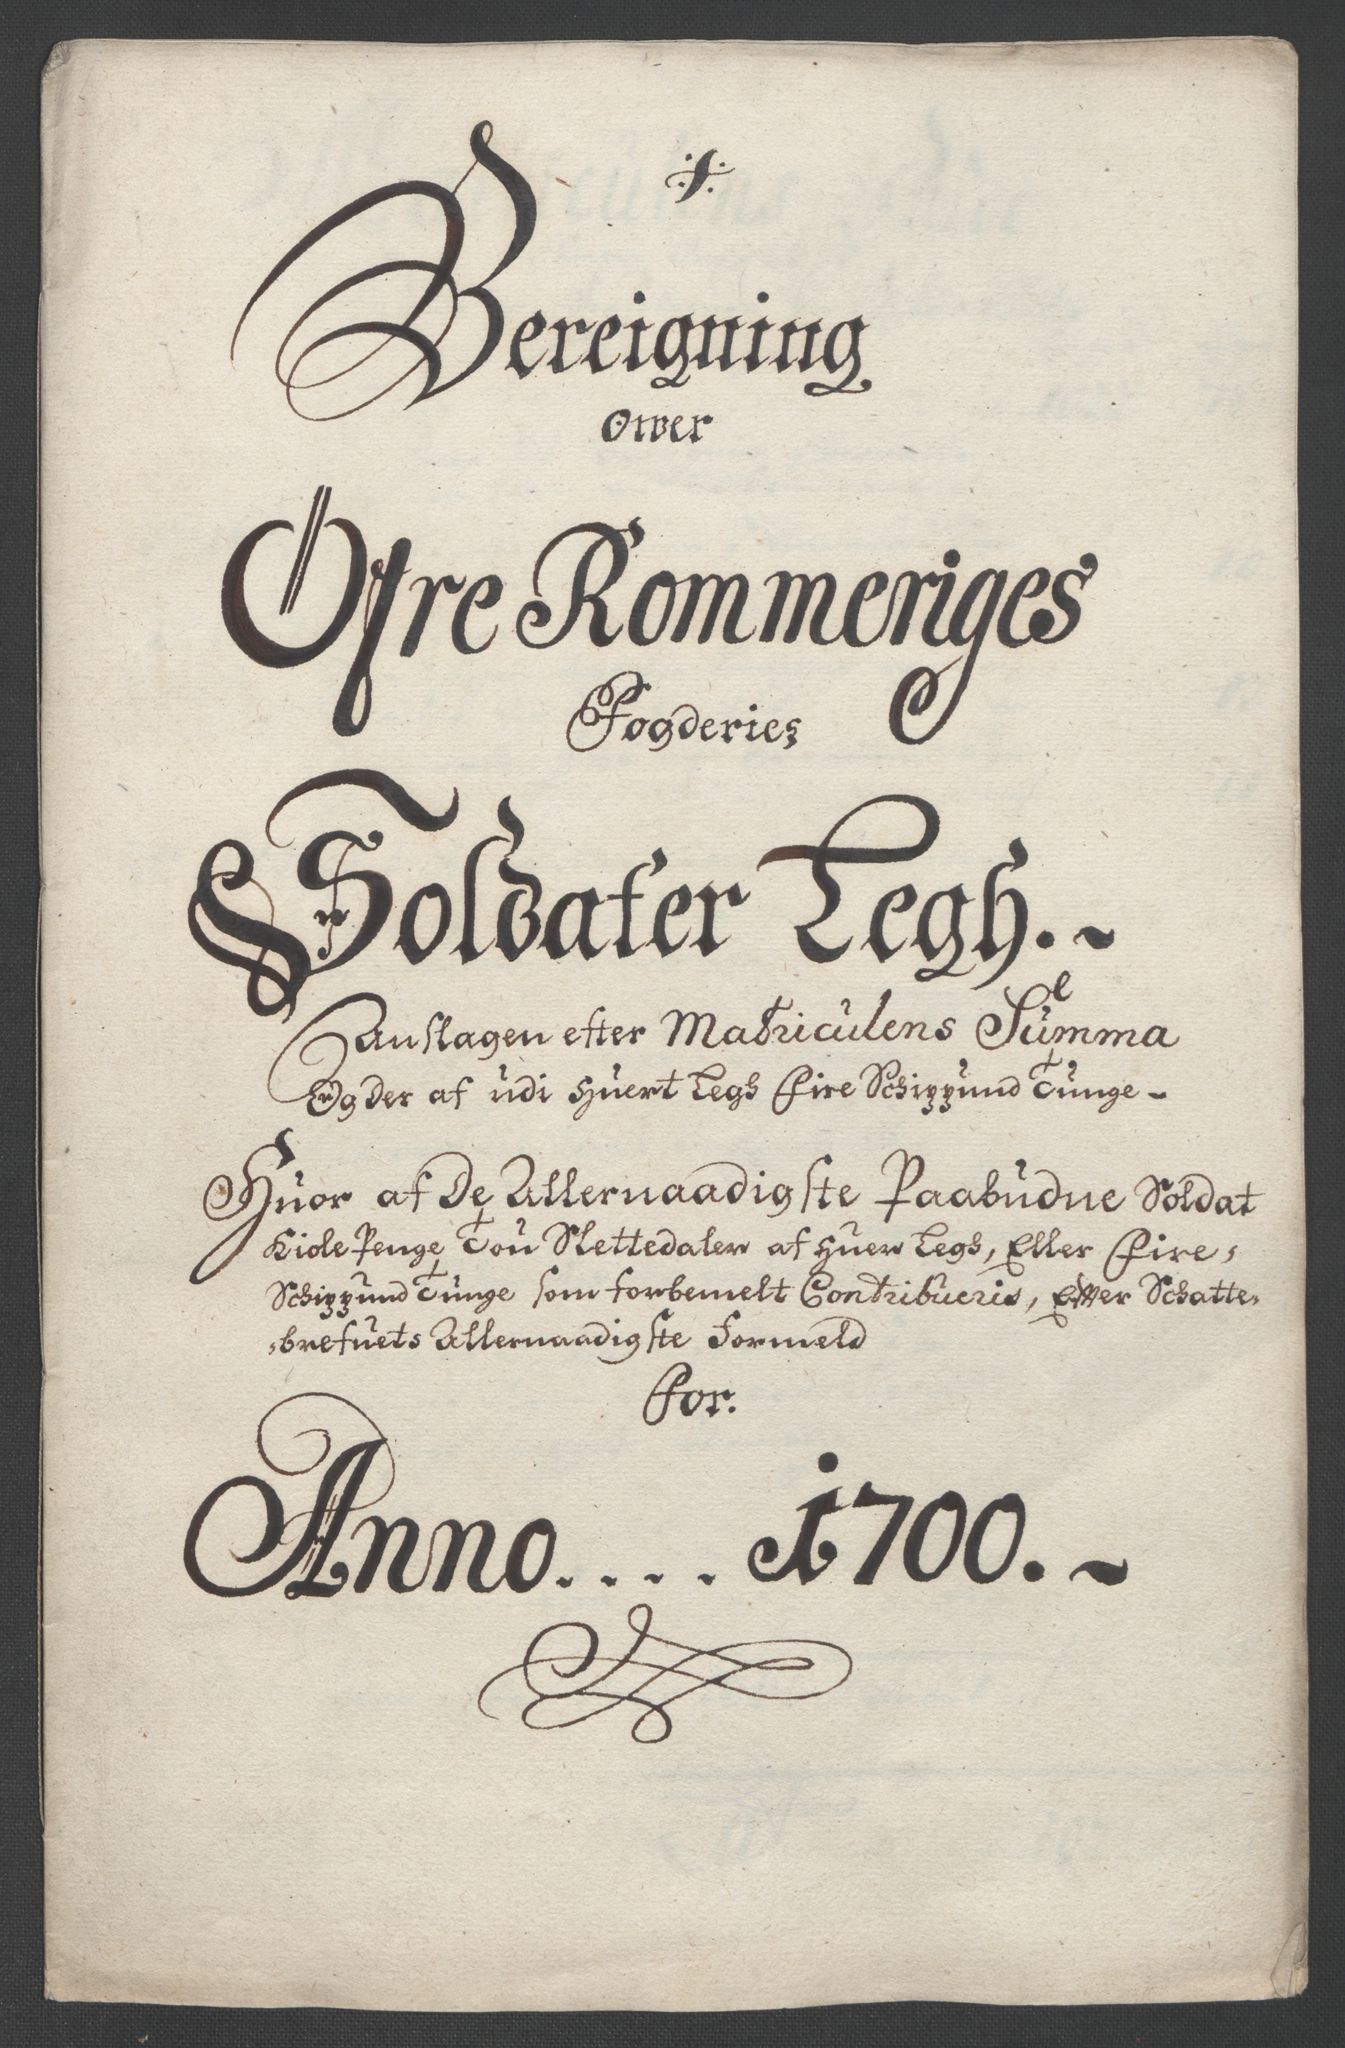 Bereigning
ower
Øfre Rommeriges
Fogderies
Soldater Legh.
Anslagen efter Matriculens Summa
Og der af udi Huert Legh fire Schippund Tunge
Huor af De Allernaadigste Paabudne Soldat
Kiole Penge Tou Slettedaler af huer Legh, Eller fire
Schippund Tunge som forbemelt Contribueris, Efter Schatte-
-brefuets Allernaadigste formeld
for.
Anno.... 1700.